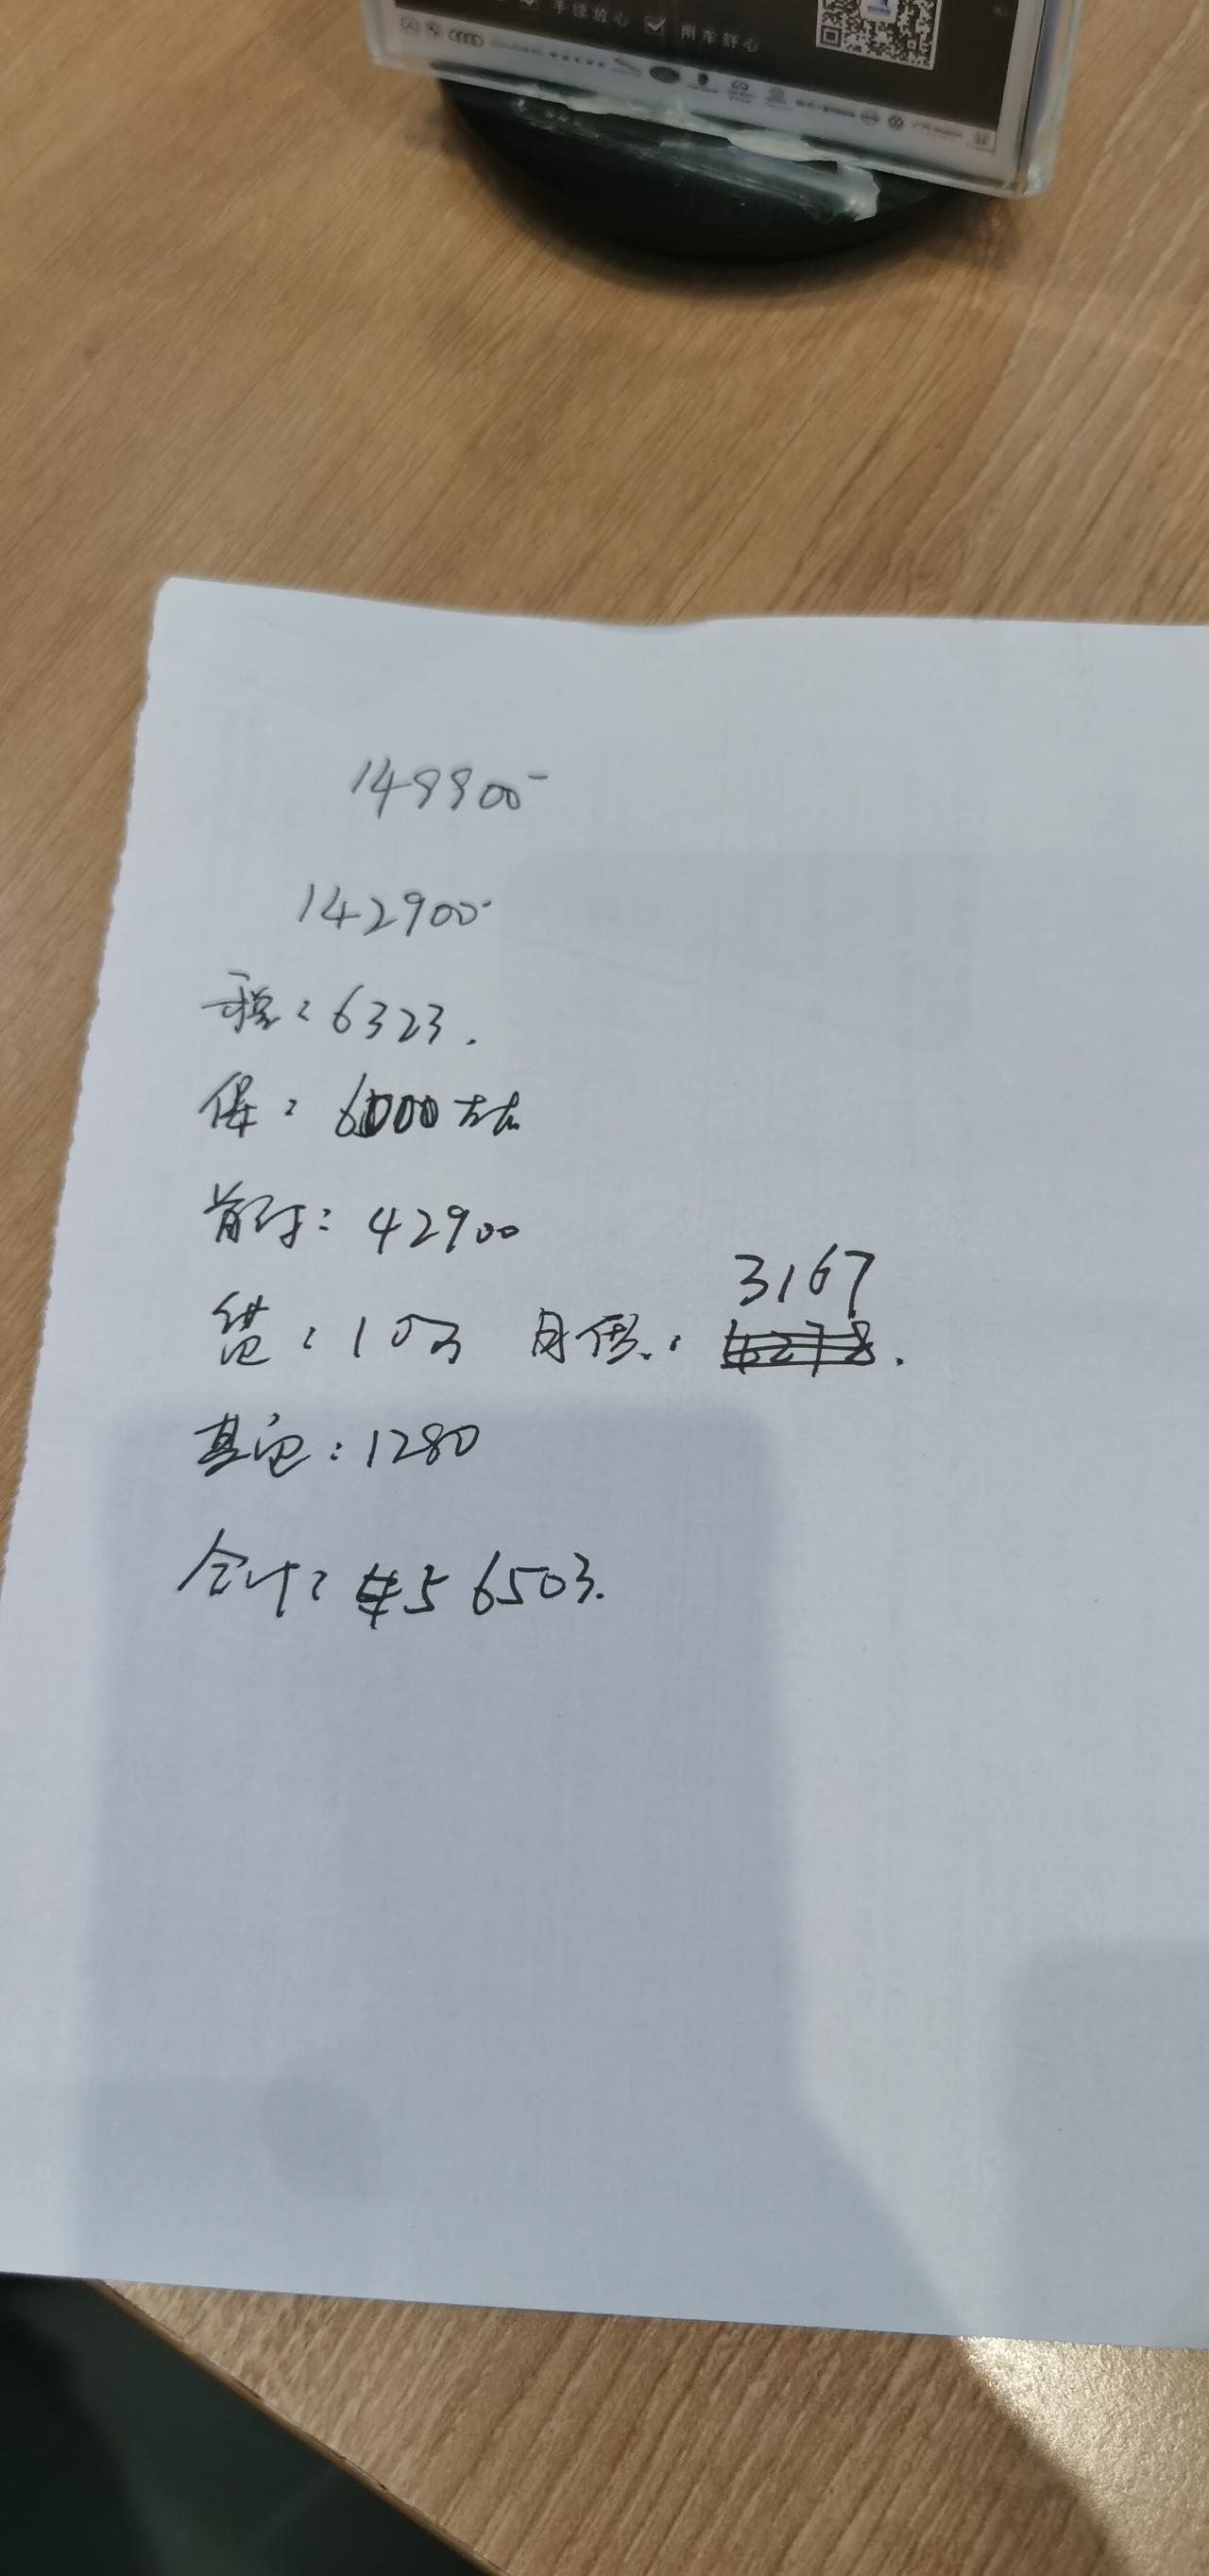 手续放心 用车舒心
149900-
142900-
税：6323.
保：6000左右
首付：42900
3167
贷：10万 月供：4278.
其它：1280
合计：456503.